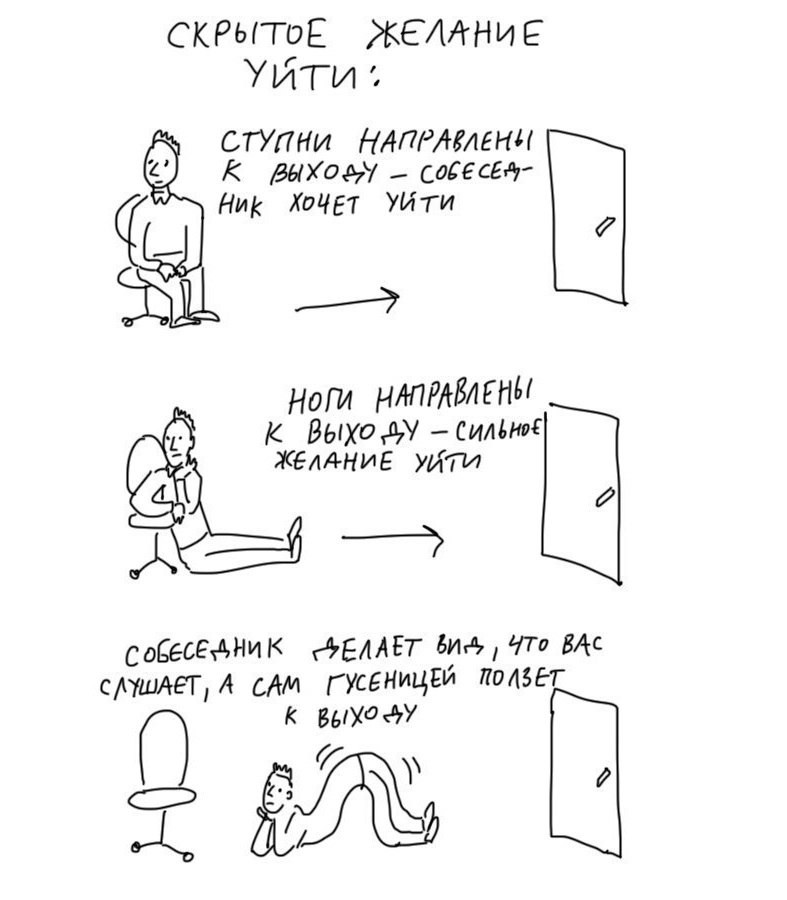 СКРЫТОЕ ЖЕЛАНИЕ
УЙТИ:
СТУПНИ НАПРАВЛЕНЫ
К ВЫХОДУ – СОБЕСЕД-
НИК ХОЧЕТ УЙТИ
НОГИ НАПРАВЛЕНЫ
К ВЫХОДУ – СИЛЬНОЕ
ЖЕЛАНИЕ УЙТИ
СОБЕСЕДНИК ДЕЛАЕТ ВИД, ЧТО ВАС
СЛУШАЕТ, А САМ ГУСЕНИЦЕЙ ПОЛЗЕТ
К ВЫХОДУ